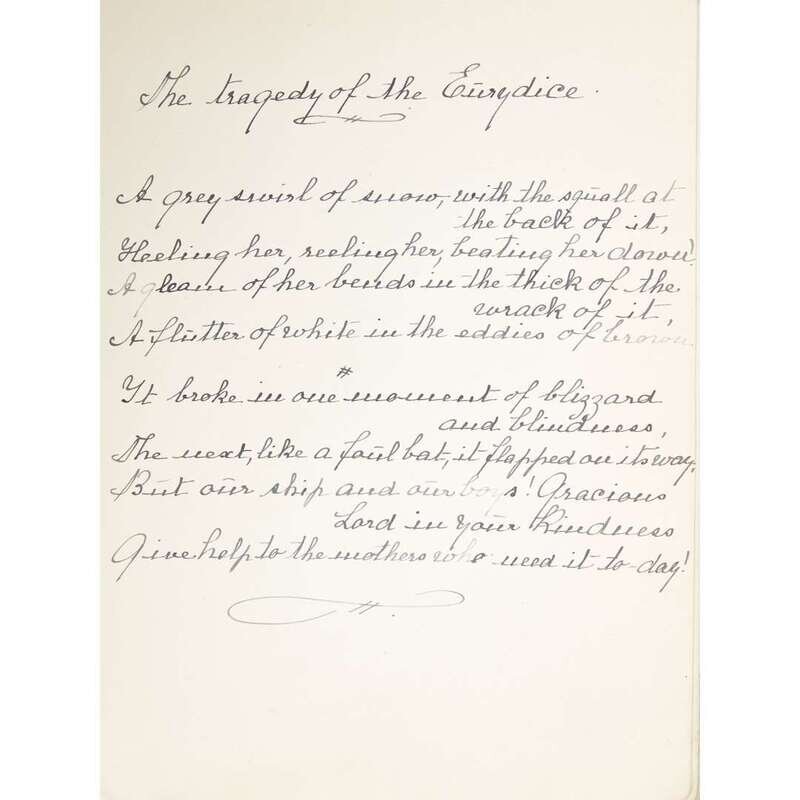 The tragedy of the Eurydice.
A grey swirl of snow, with the squall at
the back of it,
Heeling her, reeling her, beating her down!
A gleam of her bends in the thick of the
wrack of it,
A flutter of white in the eddies of brown
#
It broke in one moment of blizzard
and blindness,
The next, like a foul bat, it flapped on its way.
But our ship and our boys! Gracious
Lord in your kindness
Give help to the mothers who need it to-day!